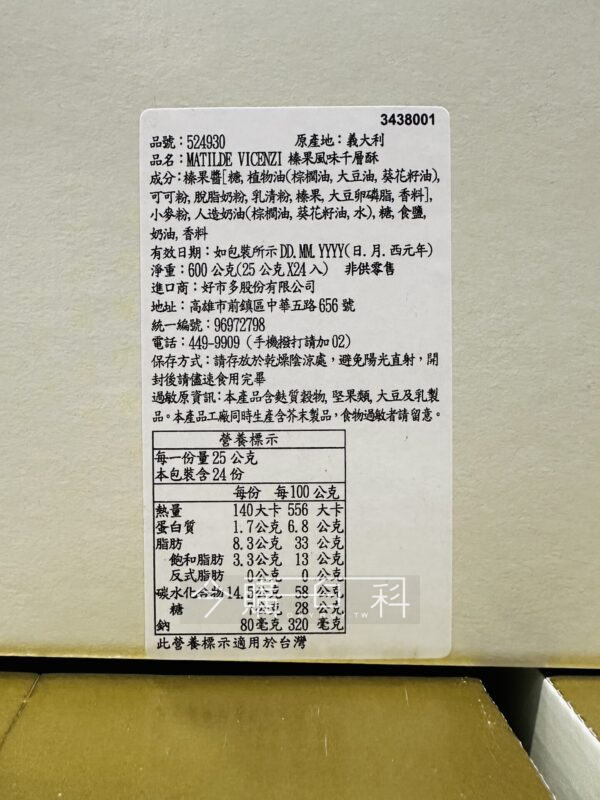 3438001
品號：524930 原產地：義大利
品名：MATILDE VICENZI 榛果風味千層酥
成分：榛果醬[糖, 植物油(棕櫚油, 大豆油, 葵花籽油),
可可粉, 脫脂奶粉, 乳清粉, 榛果, 大豆卵磷脂, 香料],
小麥粉, 人造奶油(棕櫚油, 葵花籽油, 水), 糖, 食鹽,
奶油, 香料
有效日期：如包裝所示 DD. MM. YYYY(日. 月. 西元年)
淨重：600 公克(25 公克 X24 入) 非供零售
進口商：好市多股份有限公司
地址：高雄市前鎮區中華五路 656 號
統一編號：96972798
電話：449-9909 (手機撥打請加 02)
保存方式：請存放於乾燥陰涼處，避免陽光直射，開
封後請儘速食用完畢
過敏原資訊：本產品含麩質穀物, 堅果類, 大豆及乳製
品。本產品工廠同時生產含芥末製品，食物過敏者請留意。
營養標示
每一份量 25 公克
本包裝含 24 份
每份 每 100 公克
熱量 140 大卡 556 大卡
蛋白質 1.7 公克 6.8 公克
脂肪 8.3 公克 33 公克
飽和脂肪 3.3 公克 13 公克
反式脂肪 0 公克 0 公克
碳水化合物 14.5 公克 58 公克
糖 公克 28 公克
鈉 80 毫克 320 毫克
此營養標示適用於台灣